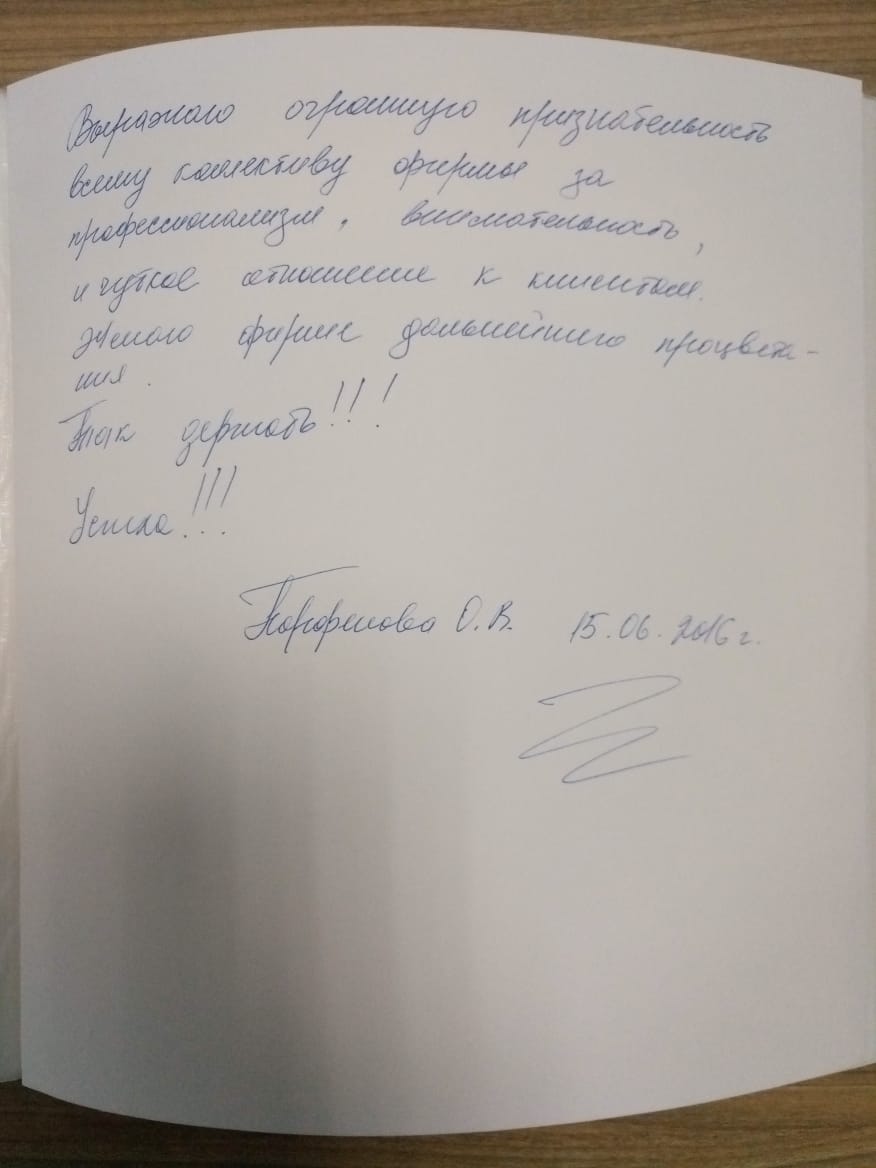 Выражаю огромную признательность
всему коллективу фирмы за
профессионализм, внимательность,
и чуткое отношение к клиентам.
Желаю фирме дальнейшего процвета-
ния.
Так держать!!!
Успеха!!!
Парфенова О.В. 15.06.2016 г.